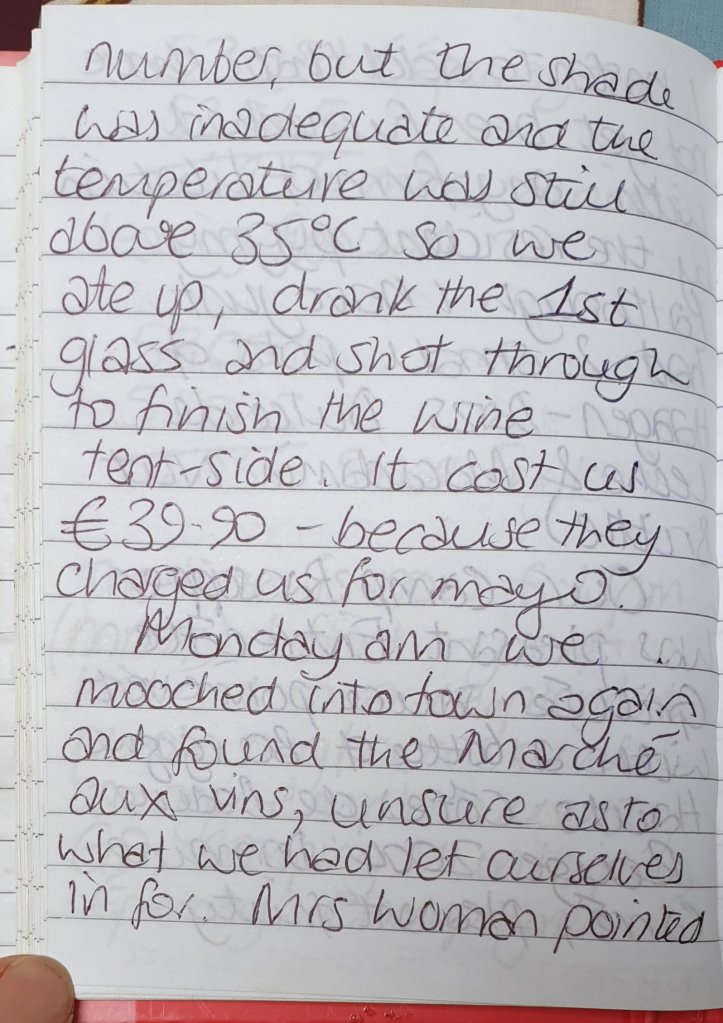 number, but the shade
was inadequate and the
temperature was still
above 35°C so we
ate up, drank the 1st
glass and shot through
to finish the wine
tent-side. It cost us
€39-90 - because they
charged us for mayo.
Monday am we
mooched into town again
and found the Marché
aux vins, unsure as to
what we had let ourselves
in for. Mrs Woman pointed